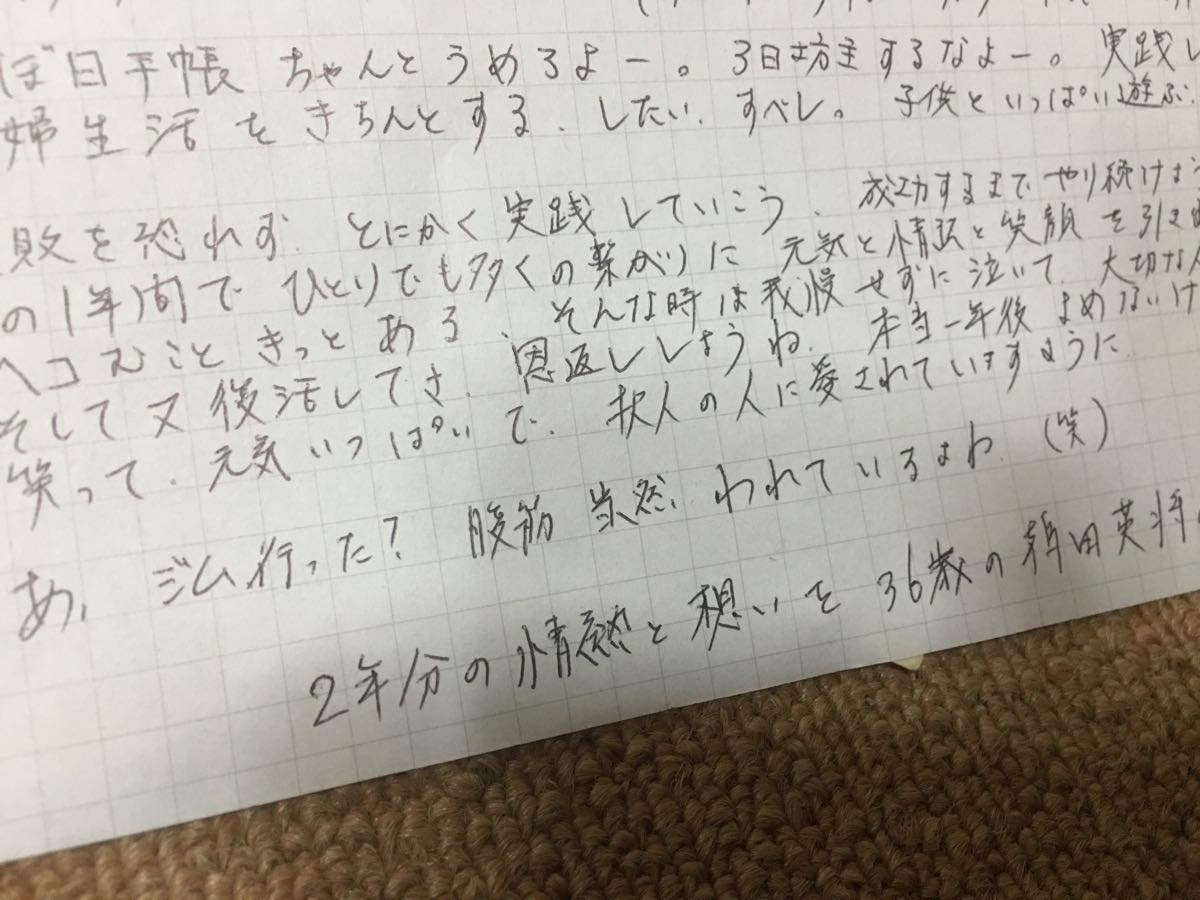 ぼ日手帳 ちゃんとうめろよー。3日坊主するなよー。実践し
婦生活をきちんとする、したい、すべし。子供といっぱい遊ぶ
敗を恐れず、とにかく実践していこう、成功するまでやり続けよう
の1年間で ひとりでも多くの繋がりに 元気と情
と笑顔を引き
ヘコむこと きっとある、そんな時は我慢せずに泣いて、大切な人
そして又後活してさ、恩返ししようね、本当一年後 よめないけ
笑って、元気いっぱいで、沢人の人に愛されていますように、
あ、ジム行った? 腹筋 当然、われているよね、(笑)
2年分の情熱と想いを 36歳の 田英将